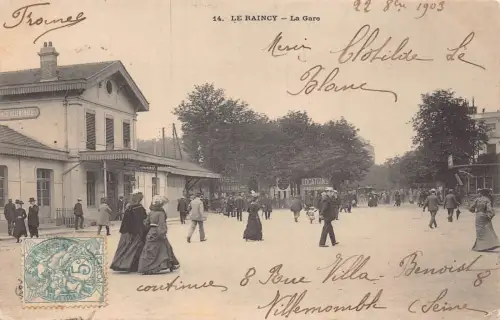 22 8bre 1903
14. LE RAINCY — La Gare
Merci Clotilde Le
Blanc
LOCATIONS
5
continuez 8 Rue Villa-Benoist 8
Villemomble (Seine)